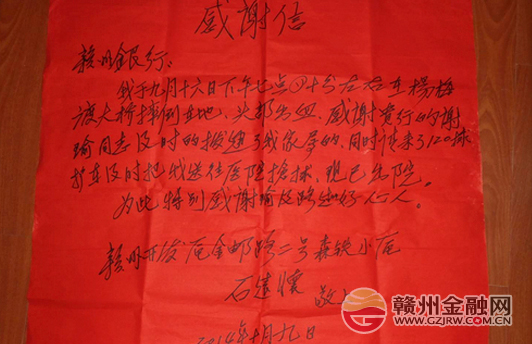 感谢信
赣州银行:
我于九月十六日下午七点四十分左右在杨梅
渡大桥摔倒在地、头部出血、感谢贵行的谢
瑜同志及时的拨通了我家属的、同时传来了120救
护车及时把我送往医院抢救、现已出院。
为此特别感谢谢瑜及路边好心人。
赣州开发区金邮路二号森铁小区
石建怀 敬上
2014年十月九日
赣州金融网
WWW.GZJRW.COM.CN